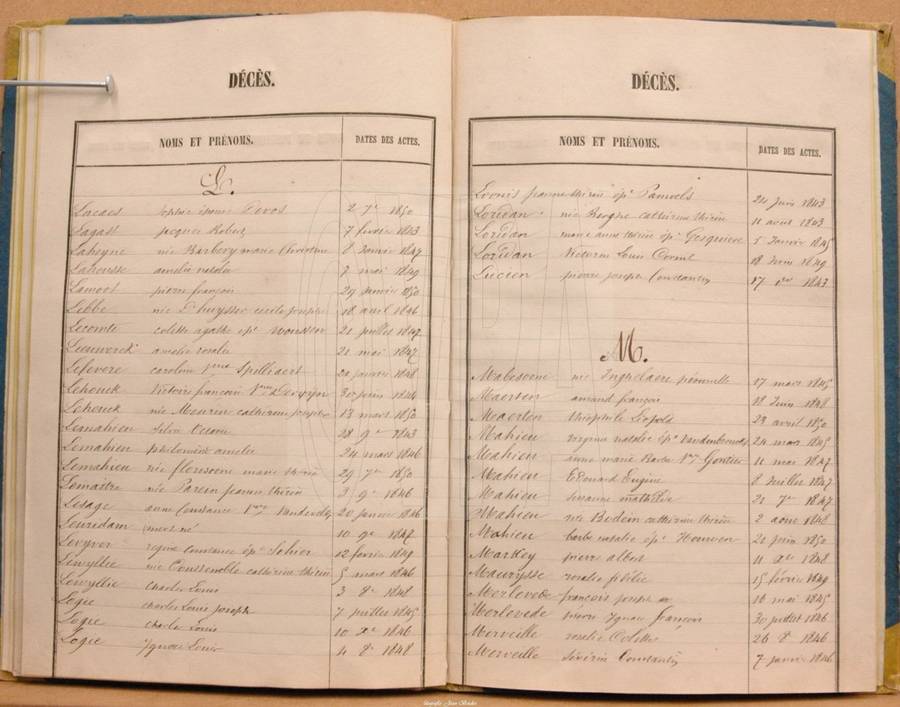 DÉCÈS.
NOMS ET PRÉNOMS. DATES DES ACTES.
L.
Lacaes sophie épouse Devos 2 7e 1850
Lagast jacques Robert 7 février 1843
Laheyne née Barbery marie Christine 8 Janvier 1847
Lahousse amelie natalie 7 mai 1849
Lamoot pierre françois 29 Janvier 1850
Lebbe née Dhuysser cecile josephe 18 avril 1846
Lecomte colette agathe ép. 21 juillet 1847
Leeuwerck amelie rosalie 21 mai 1847
Lefevere caroline Spilliaert 20 janvier 1848
Lehouck Victoire françoise 30 juin 1844
Lehouck née Meurin catherine josephe 13 mars 1850
Lemahieu 28 9e 1843
Lemahieu philomène amelie 24 mars 1846
Lemahieu née florisoone marie thérèse 29 7e 1850
Lemaitre née Parein jeanne thérèse 3 9e 1846
Lesage anne Constance Vve 20 janvier 1846
Leuridam mort né 10 9e 1847
Levyver regine constance ép. Sohier 12 février 1849
Lewyllie née Coussenoble cathérine thérèse 5 mars 1846
Lewyllie charles Louis 3 8e 1848
Logie charles Louis joseph 7 juillet 1845
Logie charles Louis 10 Xe 1846
Logie Ignace Louis 4 8e 1848
DÉCÈS.
NOMS ET PRÉNOMS. DATES DES ACTES.
Loonis jeanne thérèse ép. Pauwels 24 juin 1843
Loridan née Berghe catherine thérèse 11 aout 1843
Loridan marie anne thérèse ép. Gesquiere 5 Janvier 1845
Loridan Victorin Louis Cornil 18 Juin 1849
Lucien pierre joseph Constantin 17 1843
M.
Mabesoone née Inghelaere pétronille 17 mars 1845
Maerten amand françois 18 Juin 1848
Maerten théophile Léopold 23 avril 1850
Mahieu regina natalie ép. 24 mars 1845
Mahieu anne marie Barbe Vve Gontier 11 mai 1847
Mahieu Edouard Eugène 8 Juillet 1847
Mahieu mathilde 21 7e 1847
Mahieu née Bodein cathérine thérèse 2 aout 1848
Mahieu barbe rosalie ép. Houwen 21 juin 1850
Markey pierre albert 11 Xe 1848
Maurysse rosalie 15 février 1849
Merlevede françois joseph 16 mai 1845
Merlevede pierre Ignace François 30 juillet 1846
Merveille rosalie Colette 26 8e 1846
Merveille séverin Constantin 7 janvier 1846